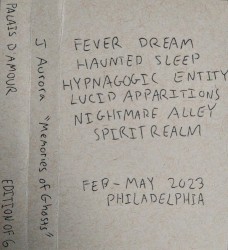 PALAIS D AMOUR
EDITION OF 6
J Aurora "Memories of Ghosts"
FEVER DREAM
HAUNTED SLEEP
HYPNAGOGIC ENTITY
LUCID APPARITIONS
NIGHTMARE ALLEY
SPIRIT REALM
FEB-MAY 2023
PHILADELPHIA